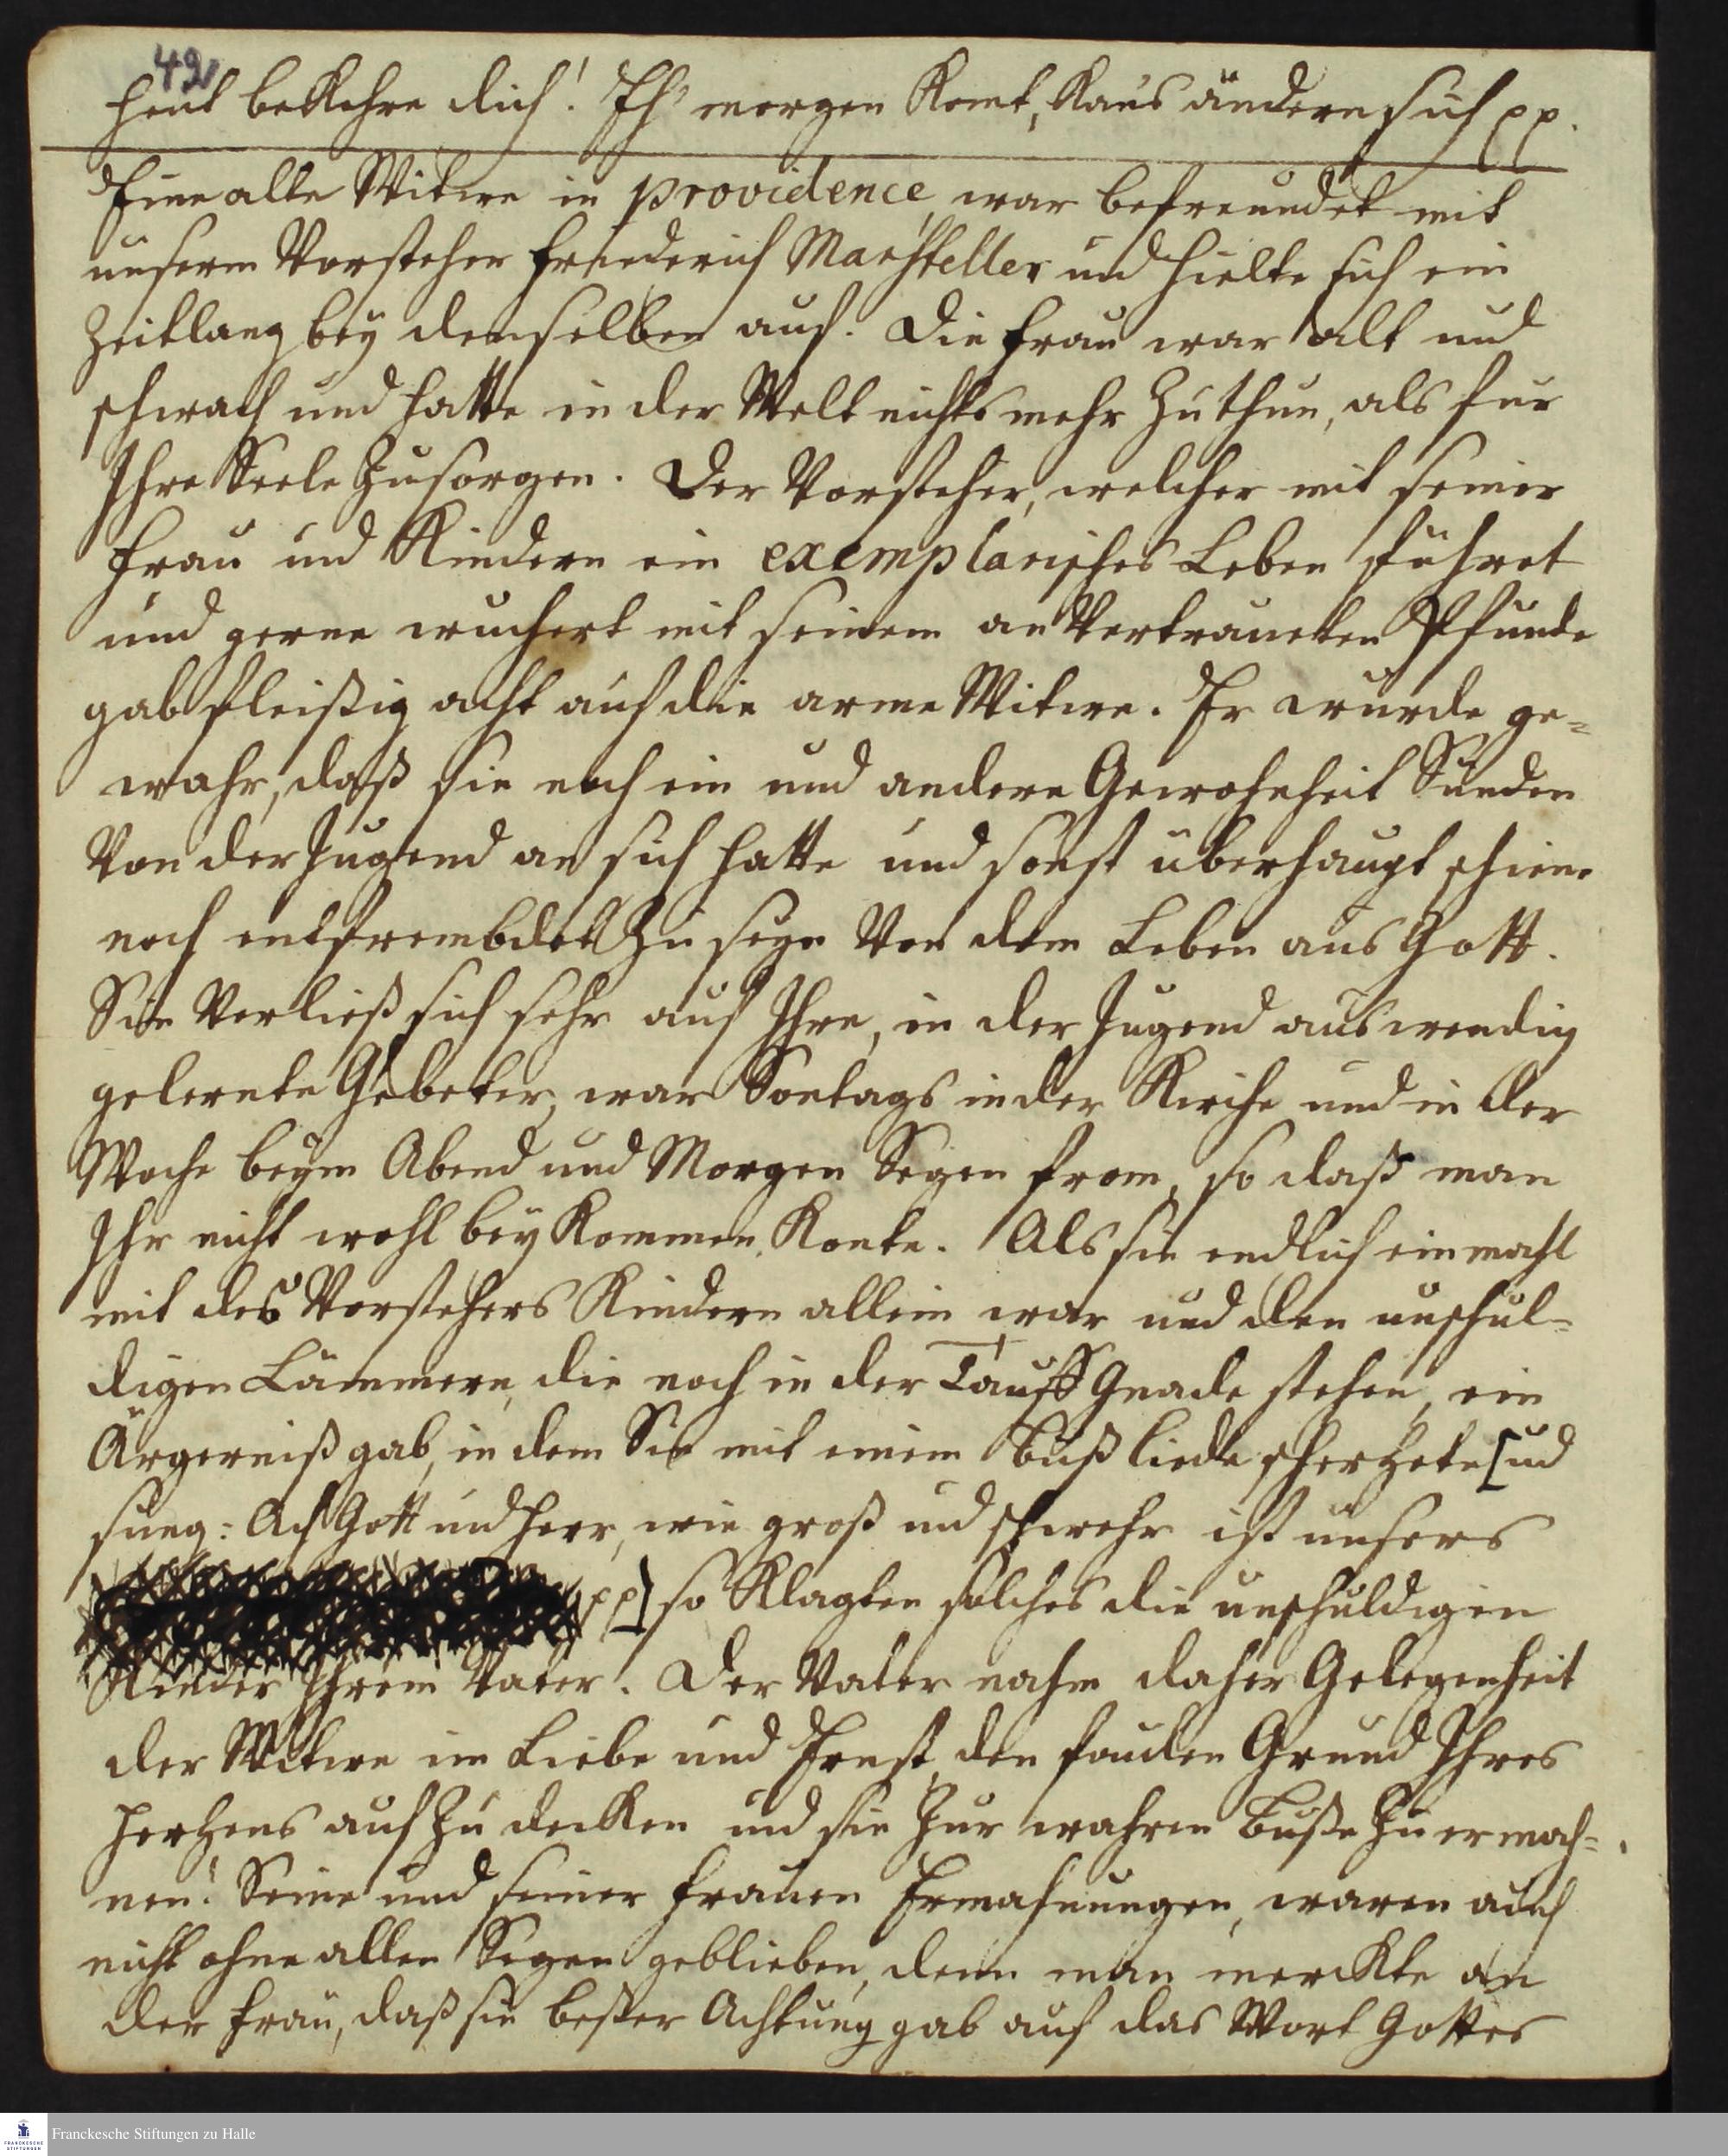 42
heut bekehre dich! Eh morgen komt, kans ändern sich pp.
Eine alte Witwe in providence, war befreundet mit
unserm Vorsteher Friederich Marsteller und hielte sich ein
Zeitlang bey demselben auf. Die Frau war alt und
schwach und hatte in der Welt nichts mehr zuthun, als fur
Ihre Seele zusorgen. Der Vorsteher, welcher mit seiner
Frau und Kindern ein exemplarisches Leben führet
und gerne wuchert mit seinem anvertraueten Pfunde
gab fleißig acht auf die arme Witwe. Er wurde ge-
wahr, daß sie noch ein und andere Gewohnheit Sünden
Von der Jugend an sich hatte und sonst überhaupt schiene
noch entfrembdet zu seyn Von dem Leben aus Gott.
Sie Verließ sich sehr auf Ihre, in der Jugend auswendig
gelernte Gebeter, war Sontags in der Kirche und in der
Woche beym Abend und Morgen Segen from, so daß man
Ihr nicht wohl beykommen konte. Als sie endlich einmahl
mit des Vorstehers Kindern allein war und den unschul-
digen Lämmern, die noch in der Tauff Gnade stehen, ein
Ärgerniß gab, in dem Sie mit einem Buß liede scherzete [und
sung: Ach Gott und Herr, wie groß und schwehr ist unsers
pp] so klagten solches die unschuldigen
Kinder Ihrem Vater. Der Vater nahm daher Gelegenheit
der Witwe in Liebe und Ernst, den faulen Grund Ihres
Hertzens auf zu decken und sie zur wahren Buße zu ermah-
nen. Seine und seiner Frauen Ermahnungen, waren auch
nicht ohne allen Segen geblieben, denn man merckte an
der Frau, daß sie besser Achtung gab auf das Wort Gottes
Franckesche Stiftungen zu Halle